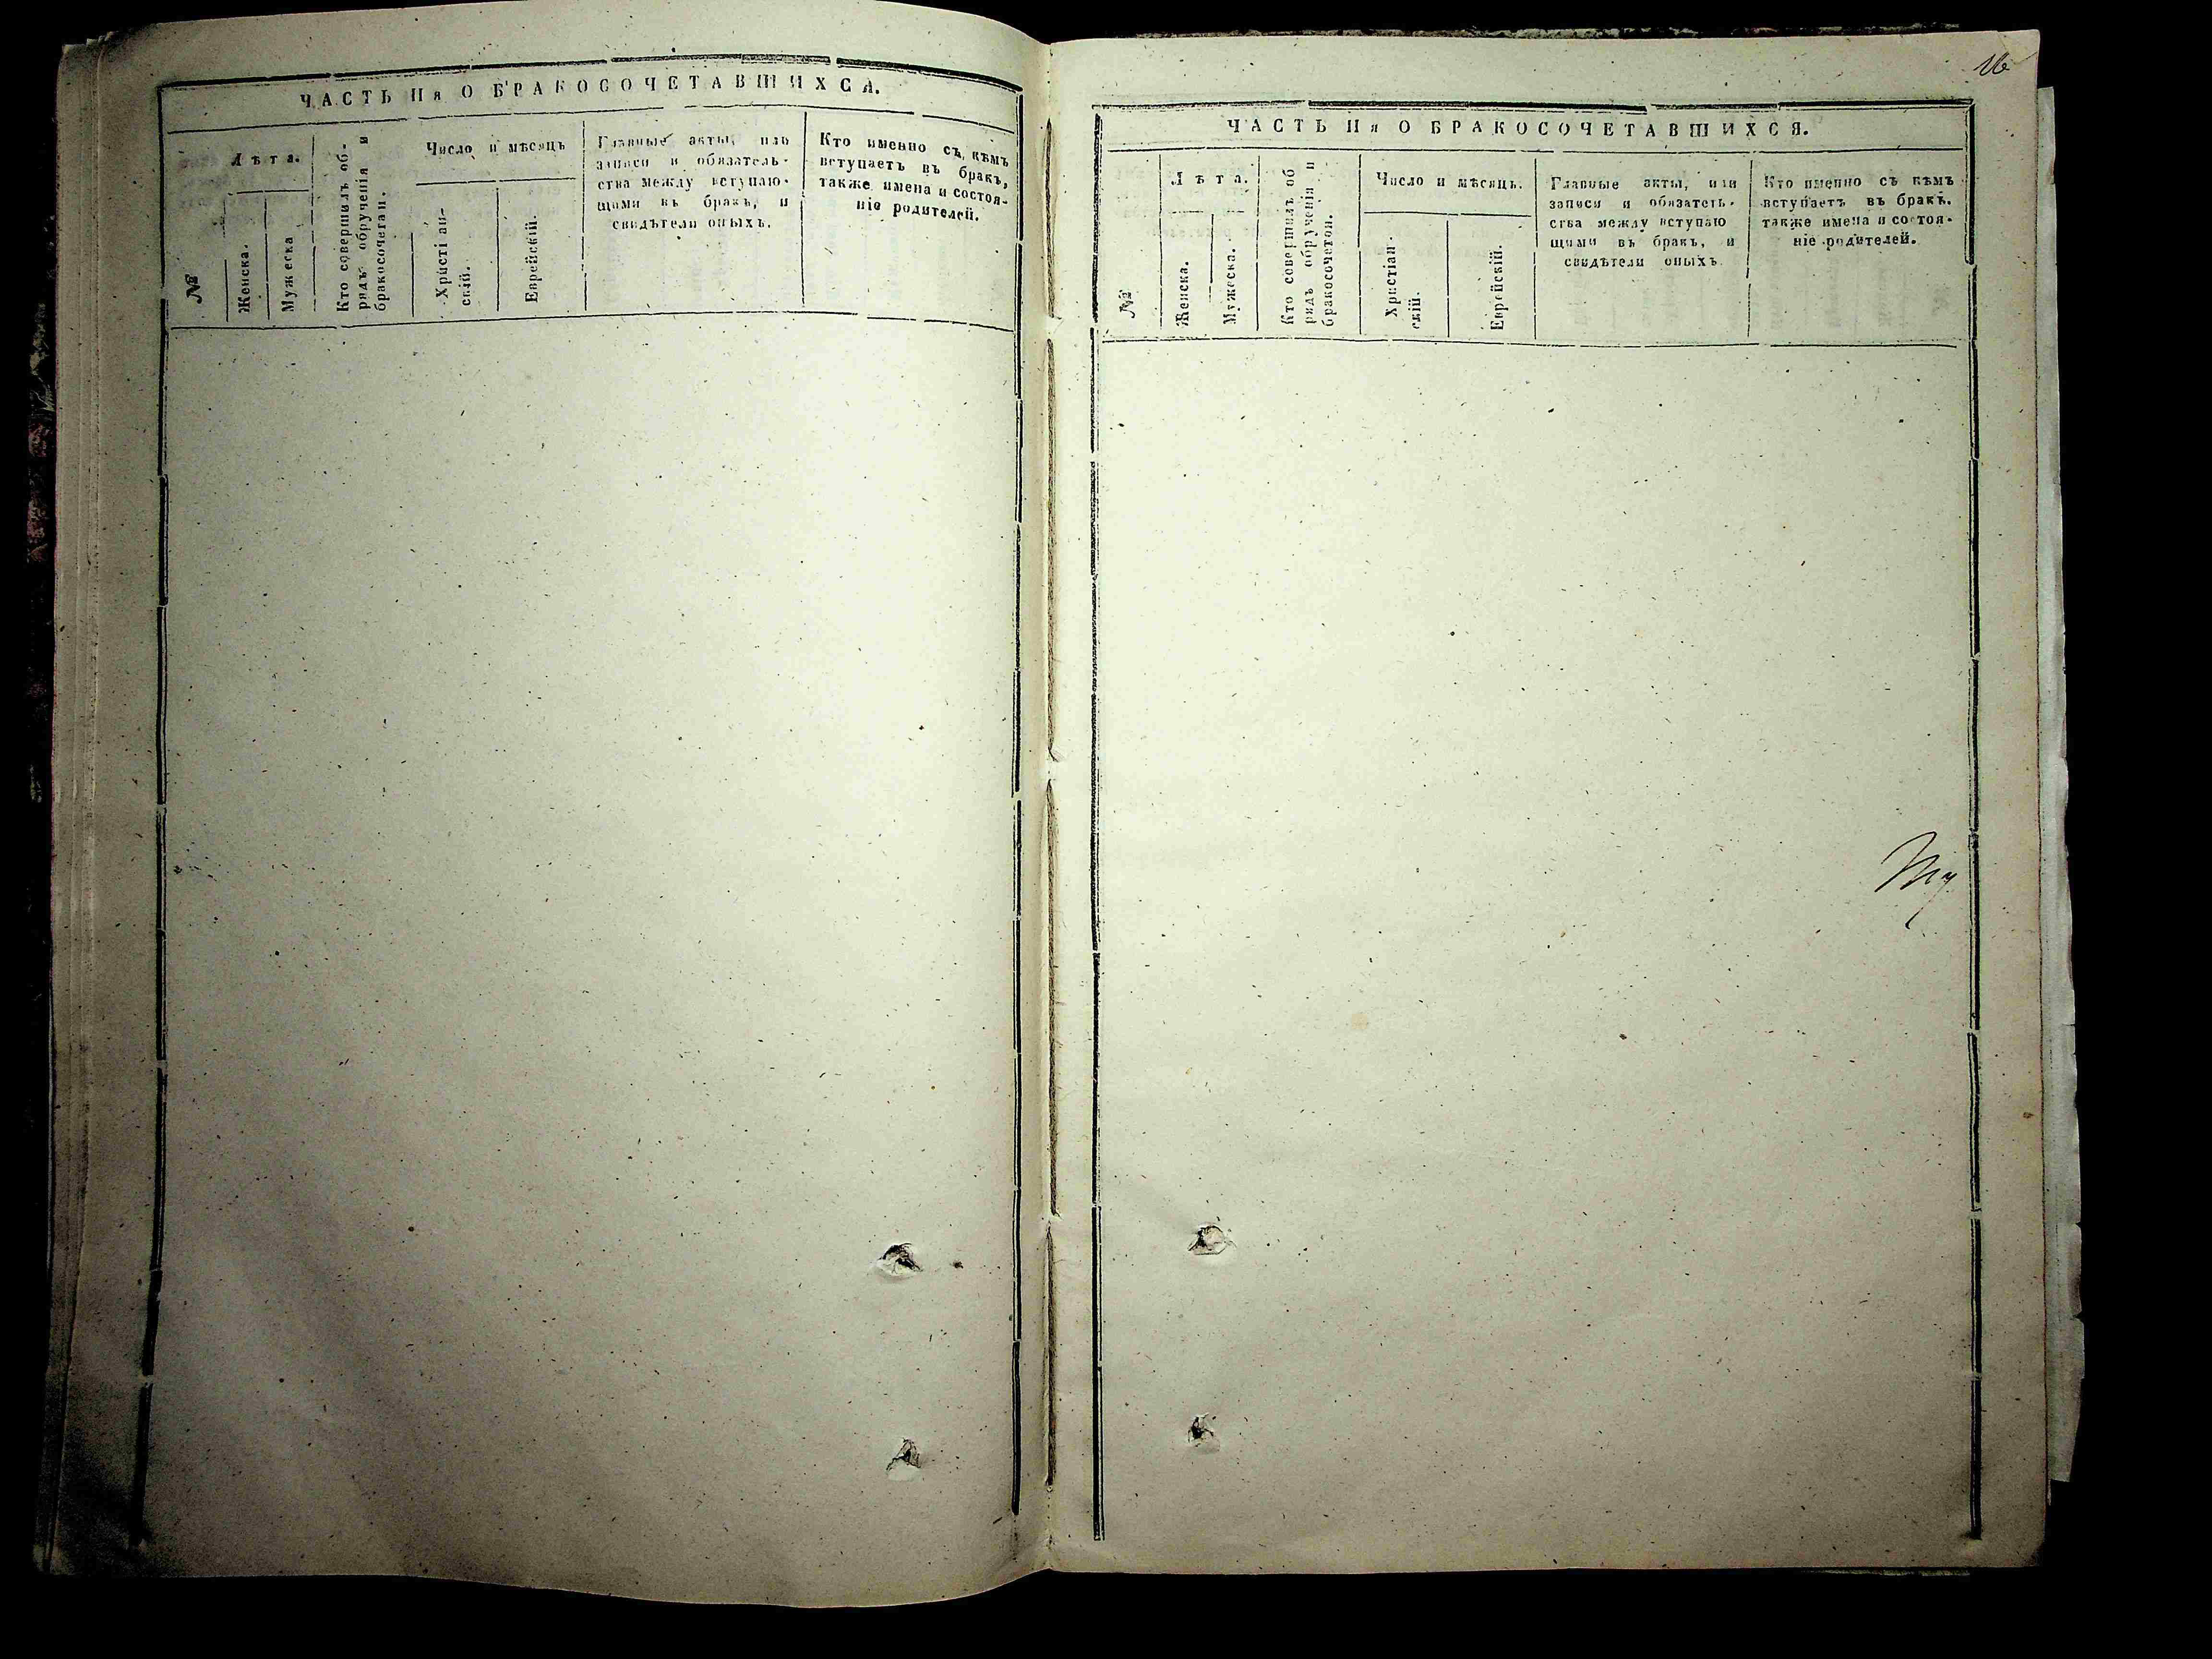 ЧАСТЬ IIя О БРАКОСОЧЕТАВШИХСЯ.
№
Лѣта.
Женска.
Мужеска
Кто совершилъ об-
рядъ обрученія и
бракосочетан.
Число и мѣсяцъ
Христіан-
скій.
Еврейскій.
Главные акты, или
записи и обязатель-
ства между вступаю-
щими въ бракъ, и
свидѣтели оныхъ.
Кто именно съ кѣмъ
вступаетъ въ бракъ,
также имена и состоя-
ніе родителей.
16
ЧАСТЬ IIя О БРАКОСОЧЕТАВШИХСЯ.
№
Лѣта.
Женска.
Мужеска.
Кто совершилъ об
рядъ обрученія и
бракосочетан.
Число и мѣсяцъ.
Христіан-
скій.
Еврейскій.
Главные акты, или
записи и обязатель-
ства между вступаю
щими въ бракъ, и
свидѣтели оныхъ
Кто именно съ кѣмъ
вступаетъ въ бракъ.
также имена и состоя-
ніе родителей.